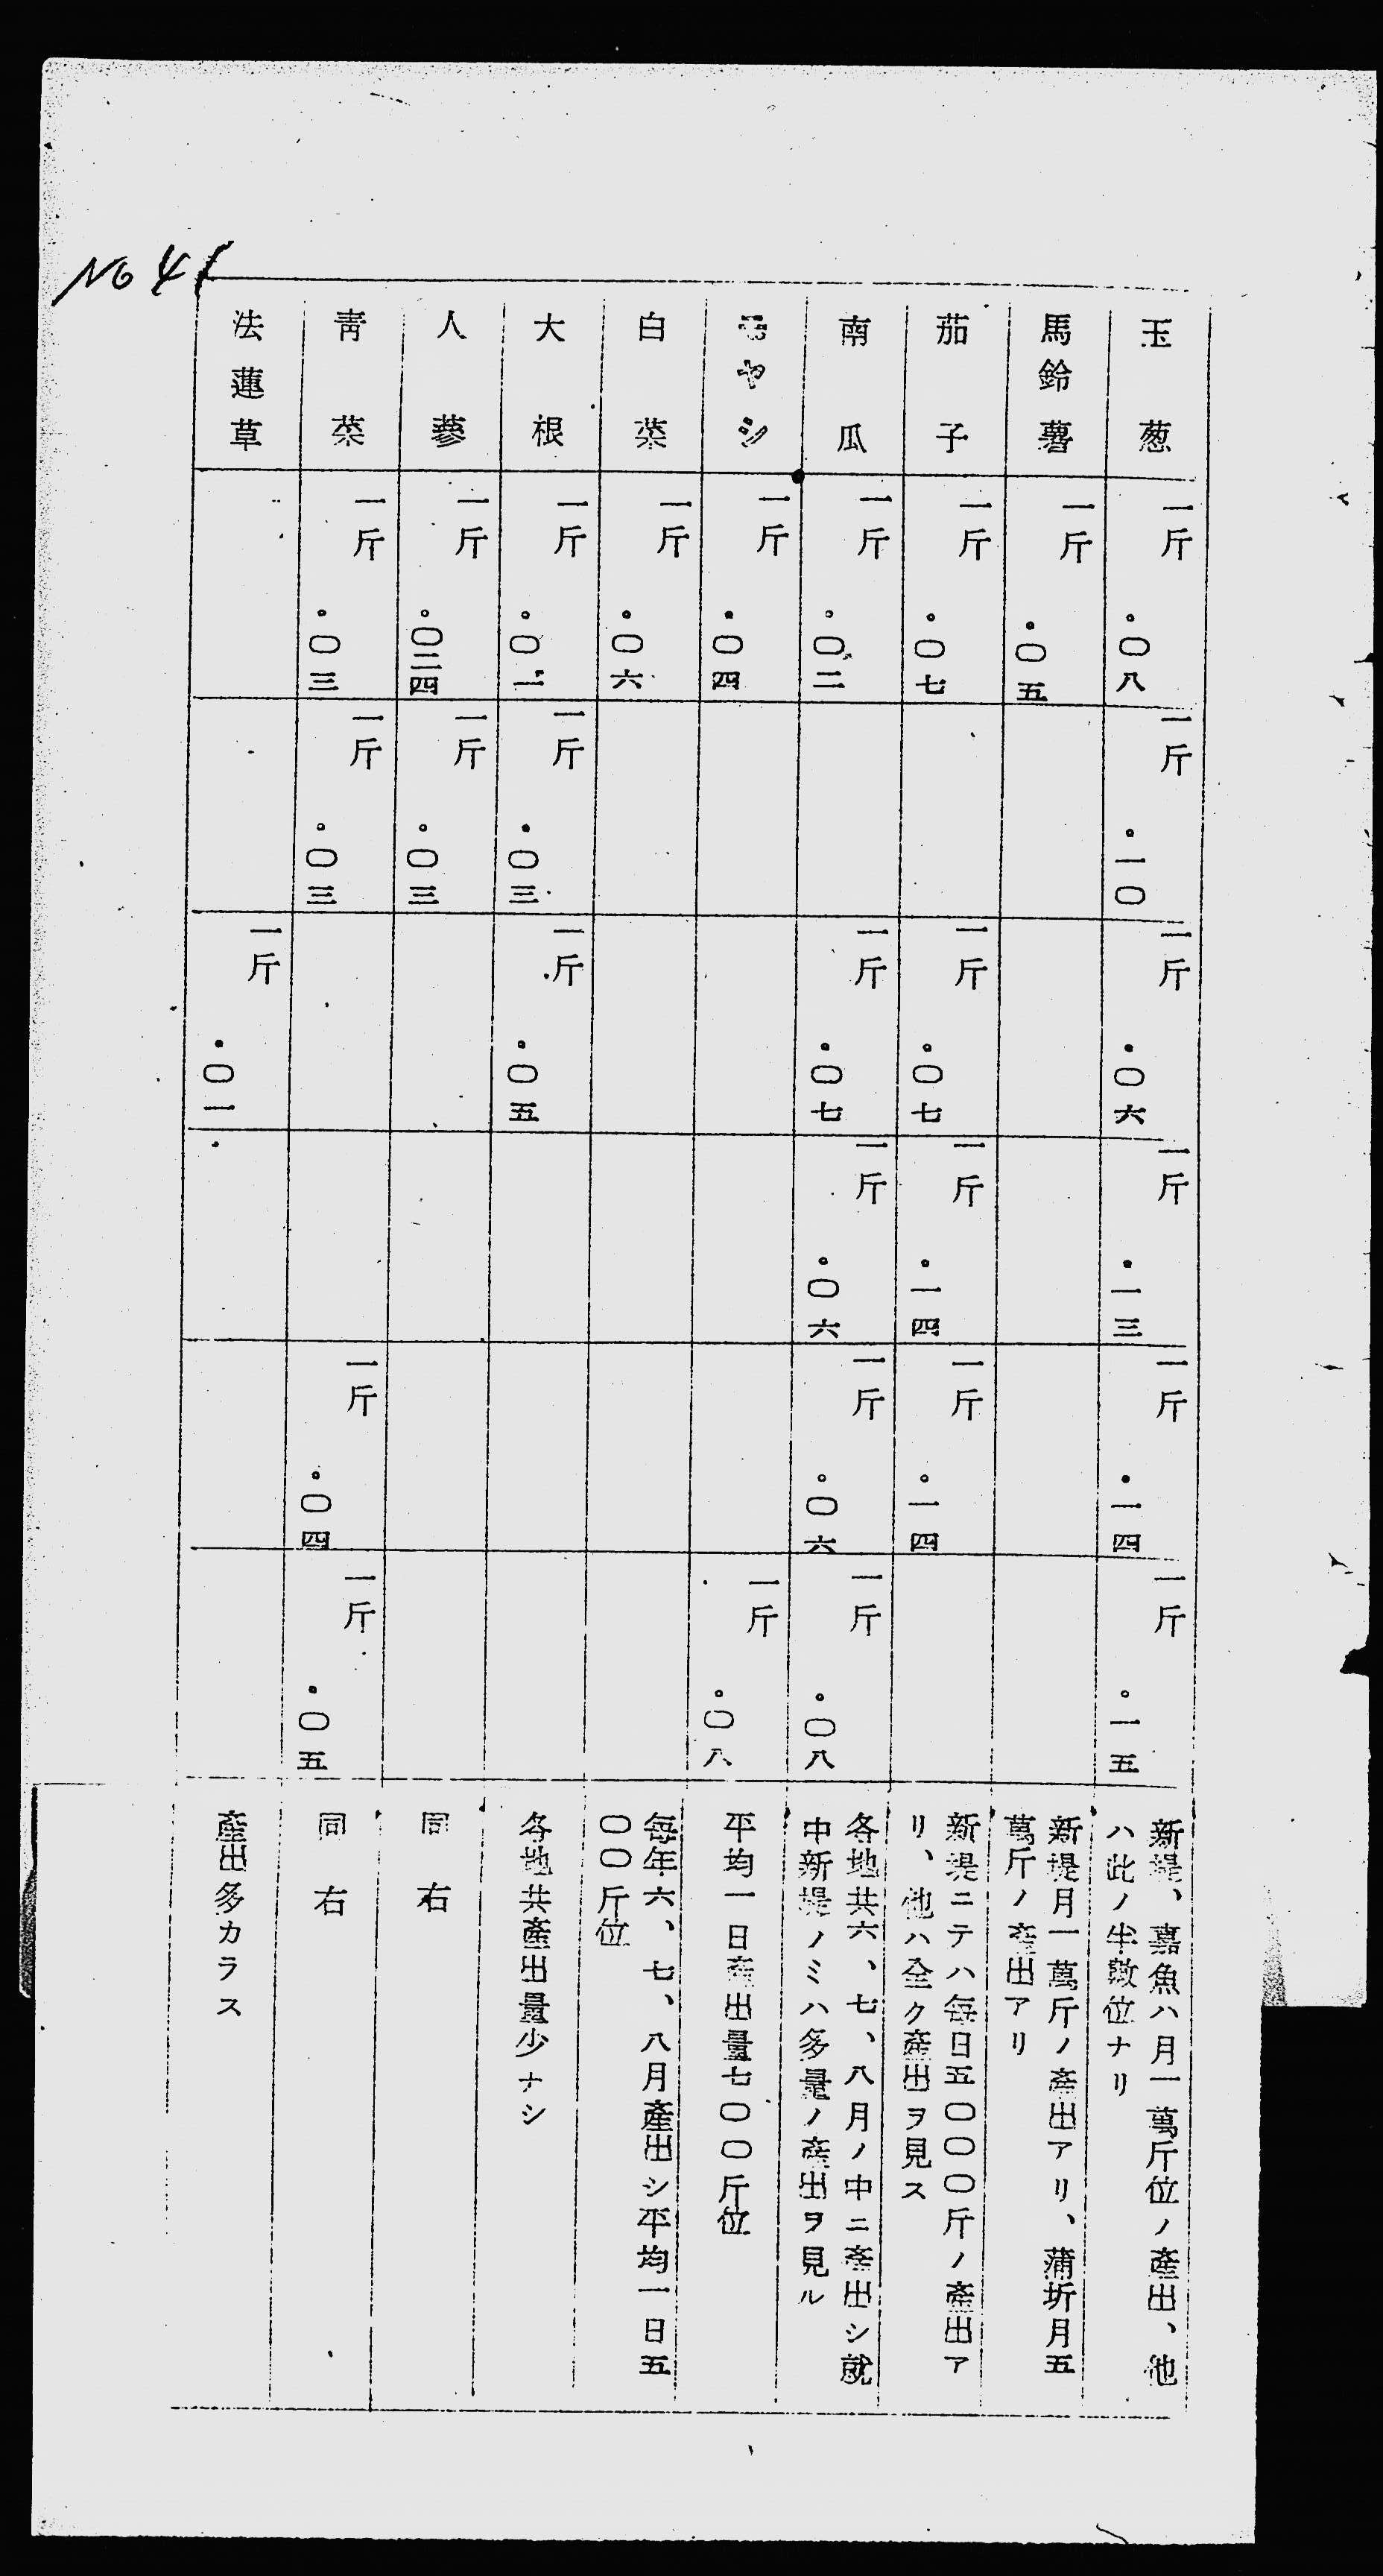 No 41
玉葱
一斤
・〇八
一斤
・一〇
一斤
・〇六
一斤
・一三
一斤
・一四
一斤
・一五
新堤、嘉魚ハ月一萬斤位ノ產出、他
ハ此ノ半數位ナリ
馬鈴薯
一斤
・〇五
新堤月一萬斤ノ產出アリ、蒲圻月五
萬斤ノ產出アリ
茄子
一斤
・〇七
一斤
・〇七
一斤
・一四
一斤
・一四
新堤ニテハ每日五〇〇〇斤ノ產出ア
リ、他ハ全ク產出ヲ見ス
南瓜
一斤
・〇二
一斤
・〇七
一斤
・〇六
一斤
・〇六
一斤
・〇八
各地共六、七、八月ノ中ニ產出シ就
中新堤ノミハ多量ノ產出ヲ見ル
モヤシ
一斤
・〇四
一斤
・〇八
平均一日產出量七〇〇斤位
白菜
一斤
・〇六
每年六、七、八月產出シ平均一日五
〇〇斤位
大根
一斤
・〇一
一斤
・〇三
一斤
・〇五
各地共產出量少ナシ
人蔘
一斤
・〇二四
一斤
・〇三
同右
靑菜
一斤
・〇三
一斤
・〇三
一斤
・〇四
一斤
・〇五
同右
法蓮草
一斤
・〇一
產出多カラス